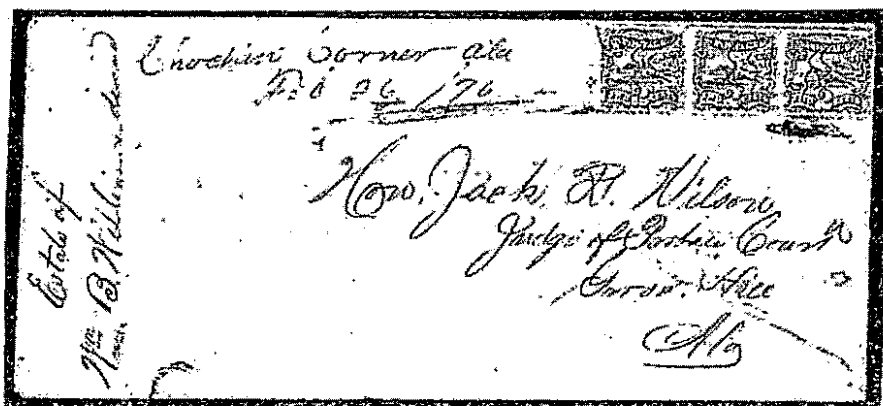 Choctaw Corner Ala
Feb 26 /70
Hon. Jack R. Wilson
Judge of Probate Court
Grove Hill
Ala
Estate of
Wm B. Williams